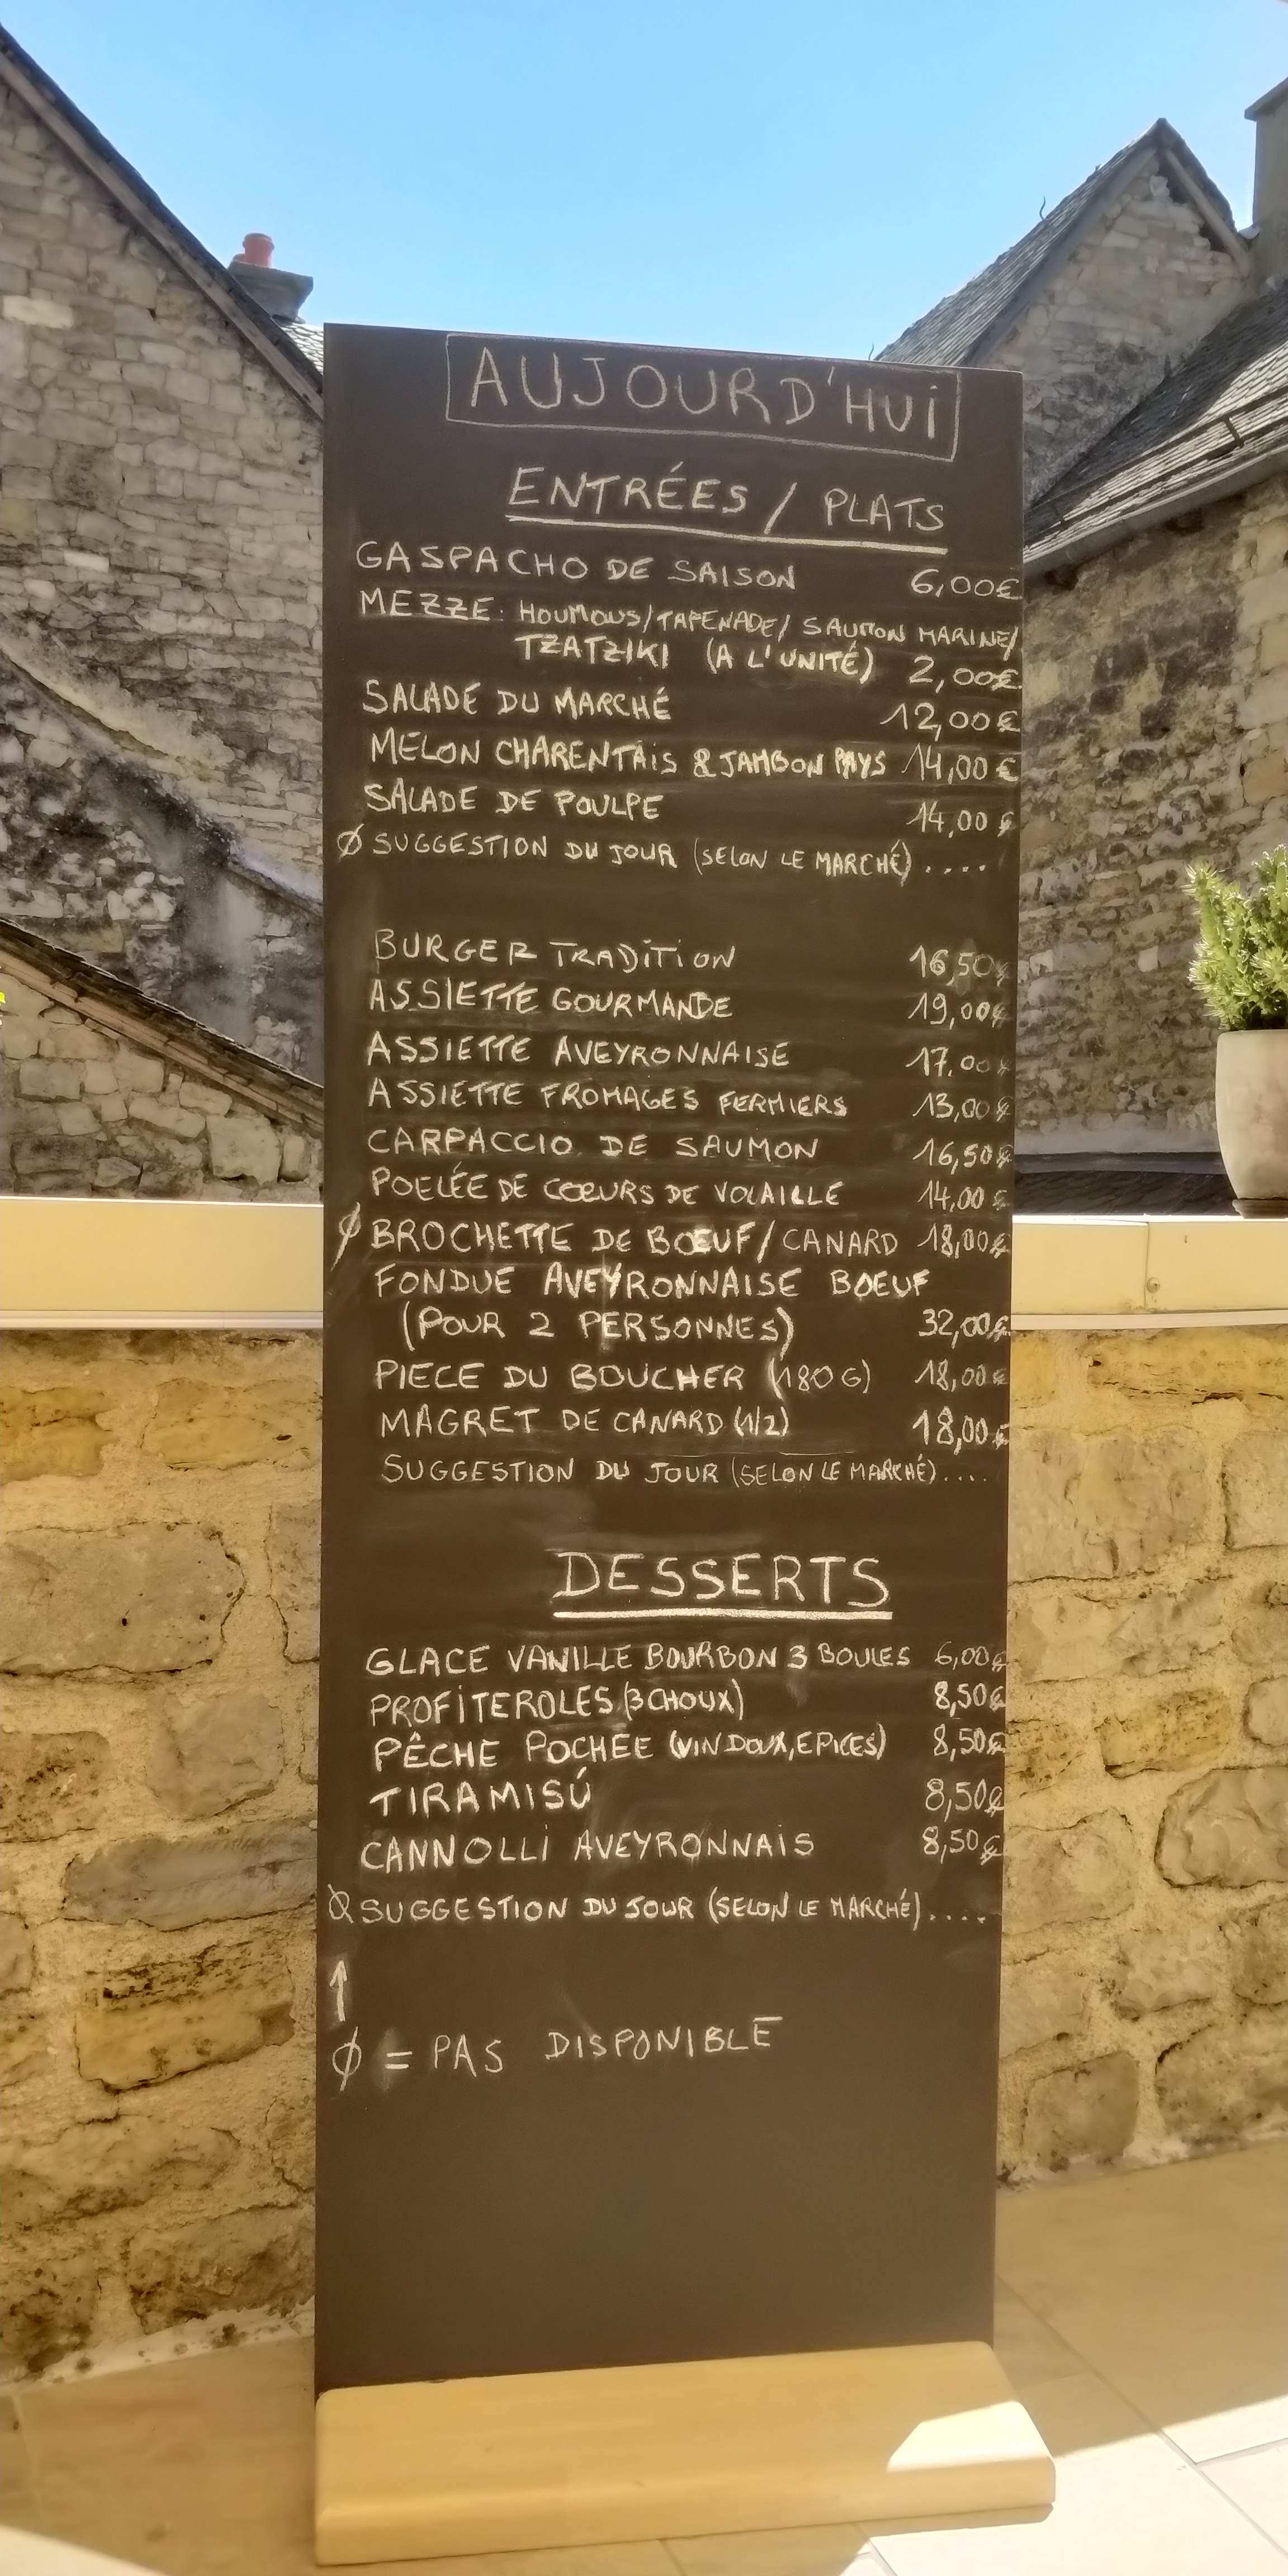 AUJOURD'HUI
ENTRÉES / PLATS
GASPACHO DE SAISON 6,00€
MEZZE: HOUMOUS/TAPENADE/ SAUMON MARINE/
TZATZIKI (A L'UNITÉ) 2,00€
SALADE DU MARCHÉ 12,00€
MELON CHARENTAIS & JAMBON PAYS 14,00€
SALADE DE POULPE 14,00€
Ø SUGGESTION DU JOUR (SELON LE MARCHÉ)....
BURGER TRADITION 16,50€
ASSIETTE GOURMANDE 19,00€
ASSIETTE AVEYRONNAISE 17.00€
ASSIETTE FROMAGES FERMIERS 13,00€
CARPACCIO DE SAUMON 16,50€
POELÉE DE CŒURS DE VOLAILLE 14,00€
Ø BROCHETTE DE BŒUF/CANARD 18,00€
FONDUE AVEYRONNAISE BOEUF
(POUR 2 PERSONNES) 32,00€
PIECE DU BOUCHER (180G) 18,00€
MAGRET DE CANARD (1/2) 18,00€
SUGGESTION DU JOUR (SELON LE MARCHÉ)....
DESSERTS
GLACE VANILLE BOURBON 3 BOULES 6,00€
PROFITEROLES (3 CHOUX) 8,50€
PÊCHE POCHÉE (VIN DOUX, EPICES) 8,50€
TIRAMISÚ 8,50€
CANNOLLI AVEYRONNAIS 8,50€
Ø SUGGESTION DU JOUR (SELON LE MARCHÉ)....
↑
Ø = PAS DISPONIBLE